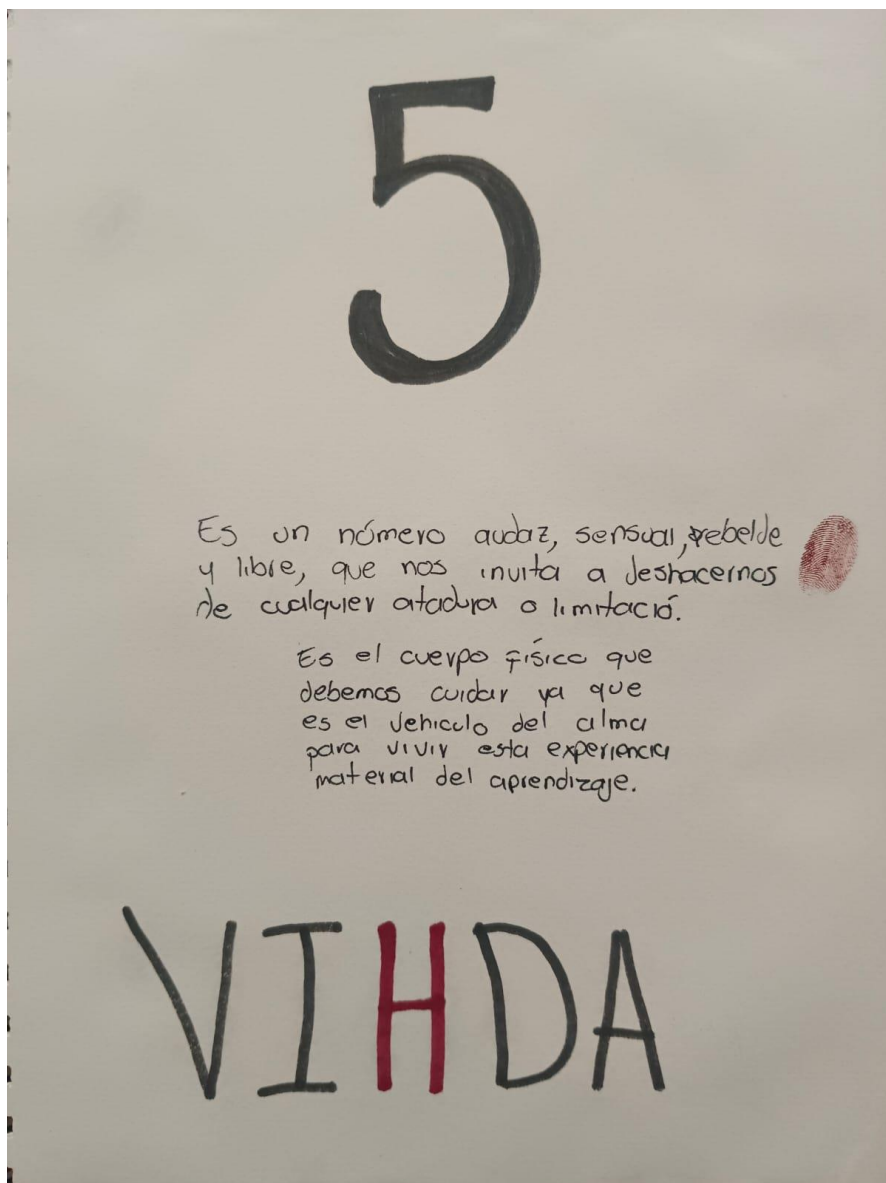 5
Es un número audaz, sensual, rebelde
y libre, que nos invita a deshacernos
de cualquier atadura o limitació.
Es el cuerpo físico que
debemos cuidar ya que
es el vehiculo del alma
para vivir esta experiencia
material del aprendizaje.
VIHDA